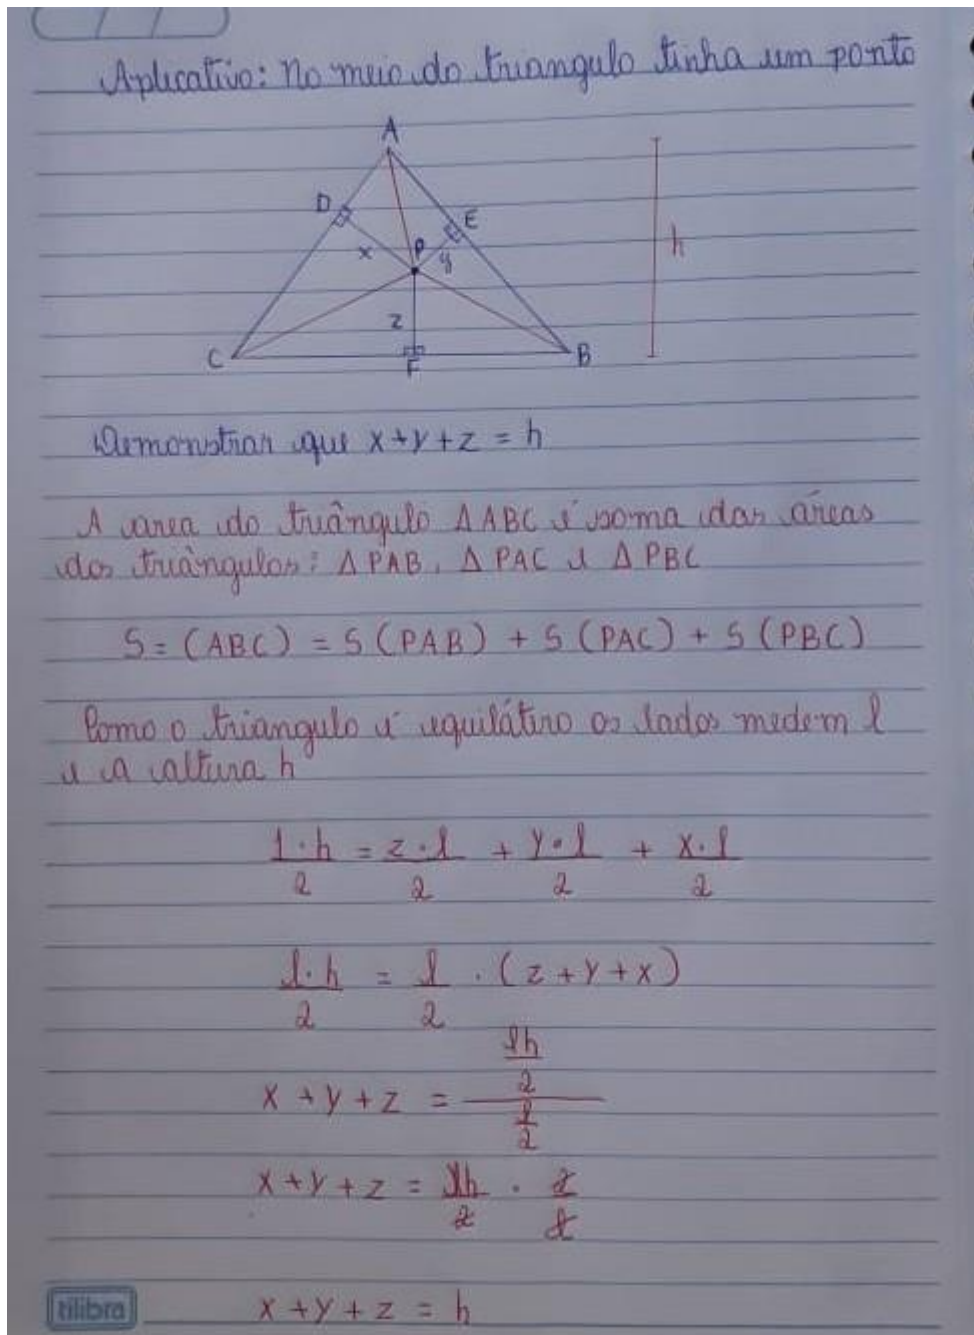 Aplicativo: No meio do triangulo tinha um ponto
A
D
E
P
x
y
h
z
C
F
B
Demonstrar que x+y+z = h
A area do triângulo ΔABC é soma das áreas
dos triângulos: Δ PAB, Δ PAC e Δ PBC
S = (ABC) = S (PAB) + S (PAC) + S (PBC)
Como o triangulo é equilátero os lados medem l
e a altura h
l·h/2 = z·l/2 + y·l/2 + x·l/2
l·h/2 = l/2 · (z+y+x)
x+y+z = (lh/2)/(l/2)
x+y+z = lh/2 · 2/l
x+y+z = h
tilibra